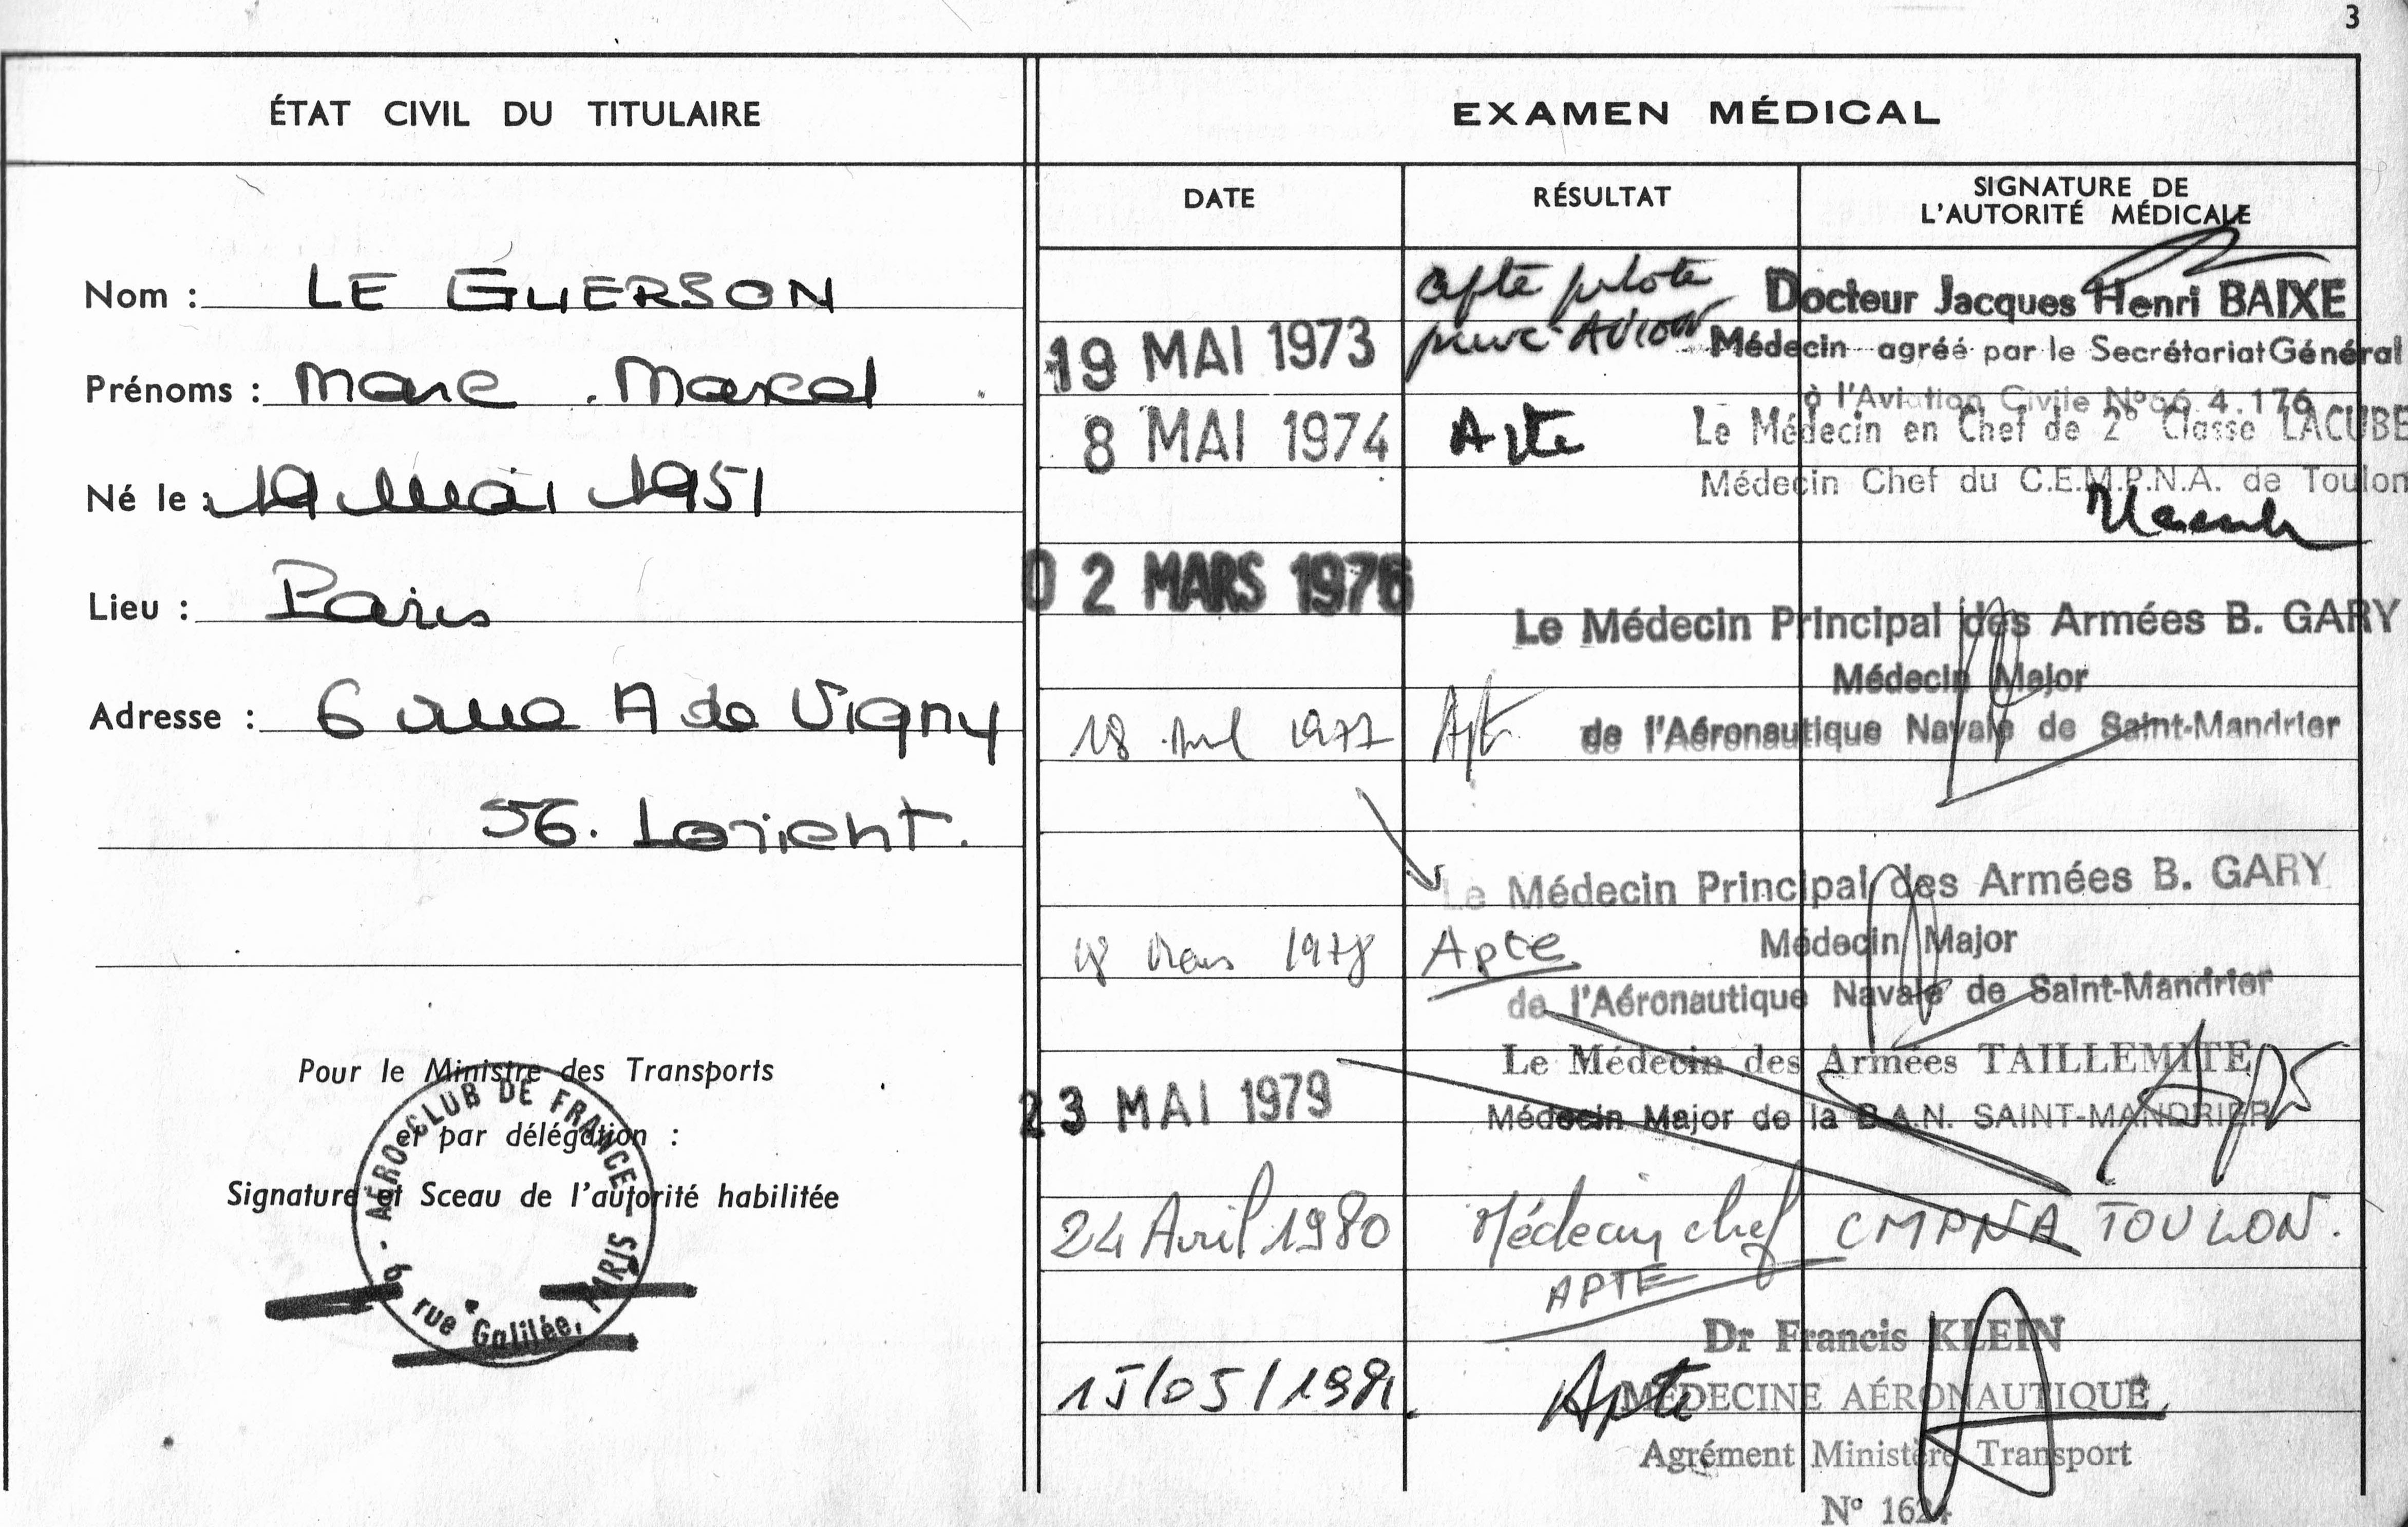 3
ÉTAT CIVIL DU TITULAIRE
Nom : LE GUERSON
Prénoms : Marc . Marcel
Né le : 19 mai 1951
Lieu : Paris
Adresse : 6 rue A de Vigny
56. Lorient.
Pour le Ministre des Transports
et par délégation :
Signature et Sceau de l'autorité habilitée
AÉRO-CLUB DE FRANCE -
rue Galilée, PARIS
EXAMEN MÉDICAL
DATE
RÉSULTAT
SIGNATURE DE
L'AUTORITÉ MÉDICALE
apte pilote
privé AVION
Docteur Jacques Henri BAIXE
19 MAI 1973
Médecin agréé par le Secrétariat Général
à l'Aviation Civile N° 66.4.176
8 MAI 1974
Apte
Le Médecin en Chef de 2° Classe LACUBE
Médecin Chef du C.E.M.P.N.A. de Toulon
02 MARS 1976
Le Médecin Principal des Armées B. GARY
Médecin Major
18 1977 Apt
de l'Aéronautique Navale de Saint-Mandrier
Le Médecin Principal des Armées B. GARY
Mars 1978 Apte
Médecin Major
de l'Aéronautique Navale de Saint-Mandrier
Le Médecin des Armées TAILLEMITE
23 MAI 1979
Médecin Major de la B.A.N. SAINT-MANDRIER
24 Avril 1980 Médecin chef CMPNA TOULON.
APTE
Dr Francis KLEIN
15/05/1981. Apte
MÉDECINE AÉRONAUTIQUE
Agrément Ministère Transport
N° 1624